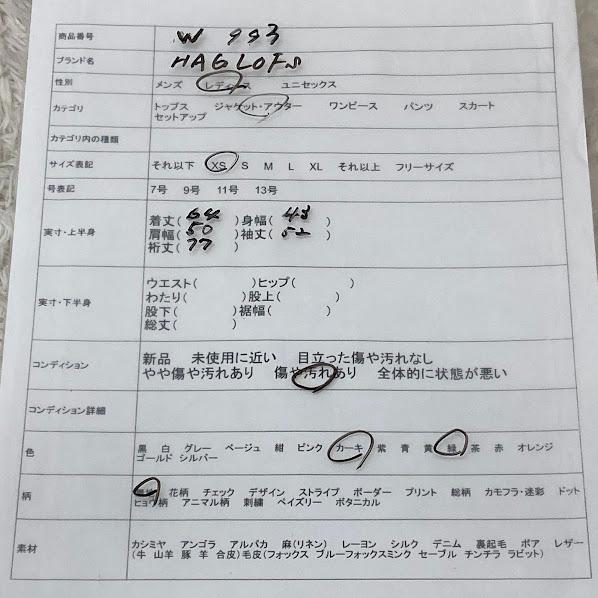 商品番号 W 993
ブランド名 HAGLOFS
性別 メンズ レディース ユニセックス
カテゴリ トップス ジャケット・アウター ワンピース パンツ スカート
セットアップ
カテゴリ内の種類
サイズ表記 それ以下 XS S M L XL それ以上 フリーサイズ
号表記 7号 9号 11号 13号
実寸・上半身
着丈( )身幅( 48 )
肩幅( 50 )袖丈( 52 )
裄丈( 77 )
実寸・下半身
ウエスト( )ヒップ( )
わたり( )股上( )
股下( )裾幅( )
総丈( )
コンディション 新品 未使用に近い 目立った傷や汚れなし
やや傷や汚れあり 傷や汚れあり 全体的に状態が悪い
コンディション詳細
色 黒 白 グレー ベージュ 紺 ピンク カーキ 紫 青 黄 緑 茶 赤 オレンジ
ゴールド シルバー
柄 花柄 チェック デザイン ストライプ ボーダー プリント 総柄 カモフラ・迷彩 ドット
ヒョウ柄 アニマル柄 刺繍 ペイズリー ボタニカル
素材 カシミヤ アンゴラ アルパカ 麻(リネン) レーヨン シルク デニム 裏起毛 ボア レザー
(牛 山羊 豚 羊 合皮)毛皮(フォックス ブルーフォックスミンク セーブル チンチラ ラビット)